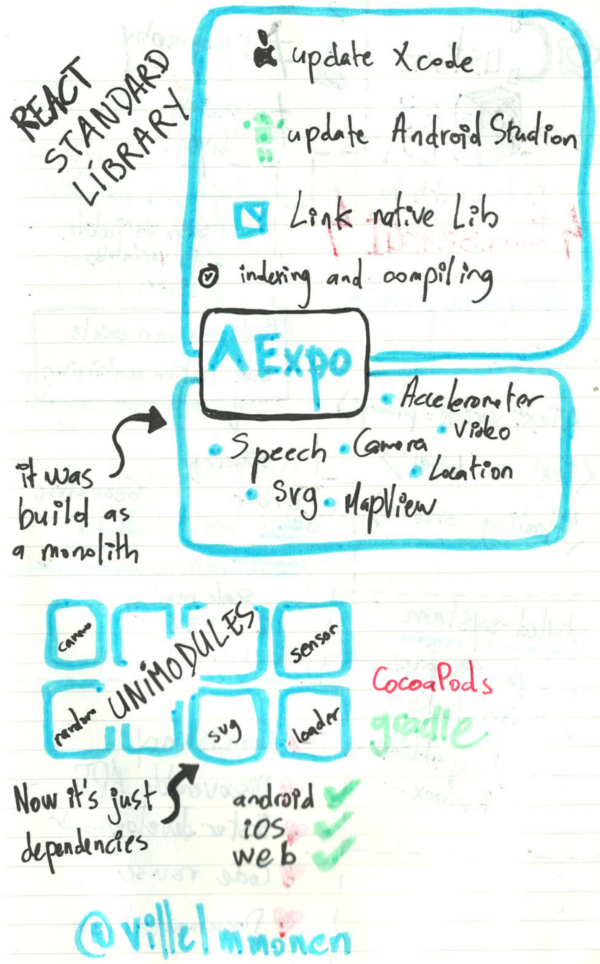 REACT
STANDARD
LIBRARY
update Xcode
update Android Studion
Link native Lib
indexing and compiling
Expo
Accelerometer
Video
Speech
Camera
Location
Svg
MapView
it was
build as
a monolith
UNIMODULES
sensor
svg
loader
CocoaPods
gradle
Now it's just
dependencies
android
iOS
web
@villeImmonen